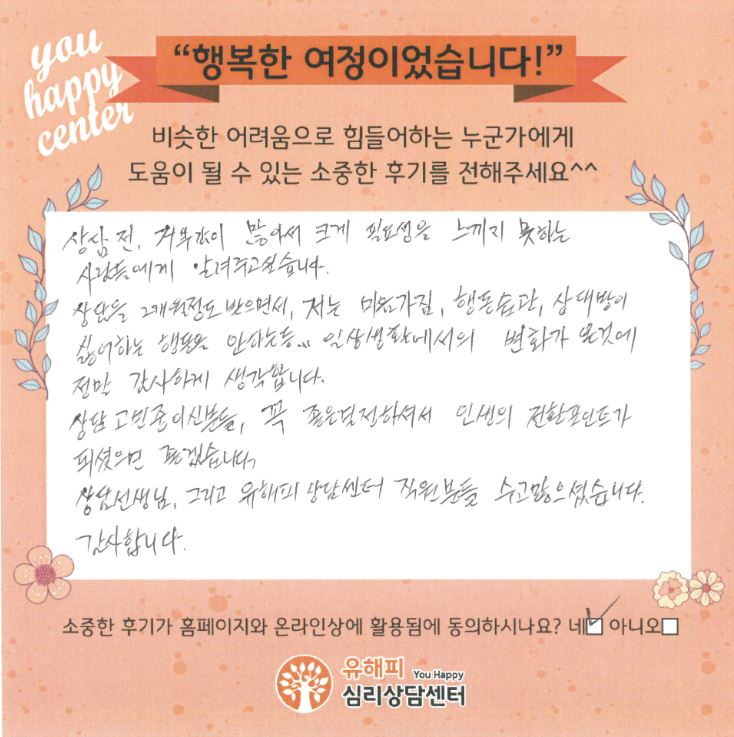 you
happy
center
“행복한 여정이었습니다!”
비슷한 어려움으로 힘들어하는 누군가에게
도움이 될 수 있는 소중한 후기를 전해주세요^^
상담 전, 거부감이 많아서 크게 필요성을 느끼지 못하는
사람들에게 알려주고싶습니다.
상담을 2개월정도 받으면서, 저는 마음가짐, 행동습관, 상대방이
싫어하는 행동을 안하는등... 일상생활에서의 변화가 온것에
정말 감사하게 생각합니다.
상담 고민중이신분들, 꼭 좋은결정하셔서 인생의 전환포인트가
되셨으면 좋겠습니다,
상담선생님, 그리고 유해피 상담센터 직원분들 수고많으셨습니다.
감사합니다.
소중한 후기가 홈페이지와 온라인상에 활용됨에 동의하시나요? 네 아니오
유해피 You Happy
심리상담센터